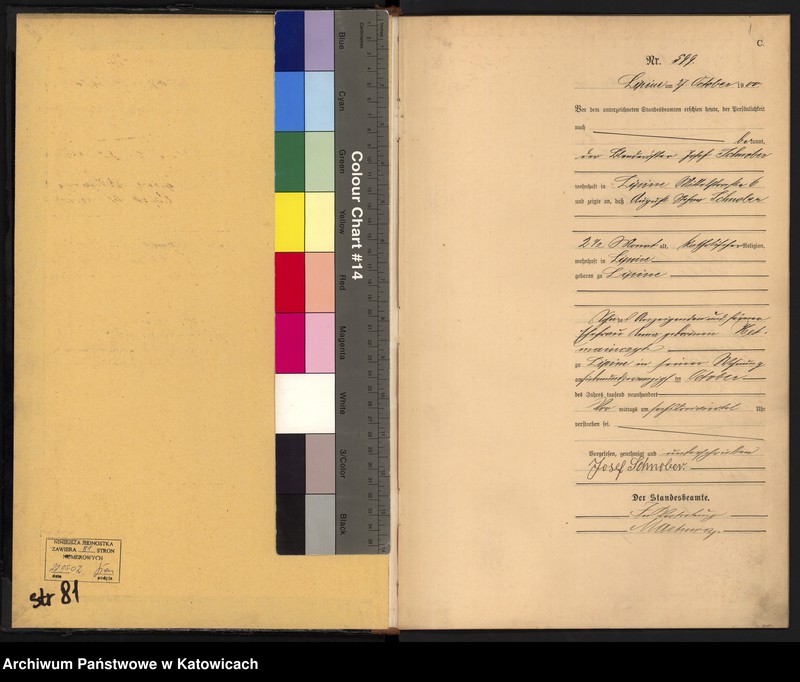 NINIEJSZA JEDNOSTKA
ZAWIERA 81 STRON
NUMEROWYCH
data
podpis
str 81
Blue
Cyan
Green
Yellow
Red
Magenta
White
3/Color
Black
Colour Chart #14
C.
Nr. 599.
Lipine am 27 October 1900.
Von dem unterzeichneten Standesbeamten erschien heute, der Persönlichkeit
nach
bekannt,
der Josef Schnober
wohnhaft in Lipine 6
und zeigte an, daß August Schnober
2 1/2 Monat alt, katholischer Religion,
wohnhaft in Lipine
geboren zu Lipine
Sohn des Anzeigenden und seiner
Ehefrau Anna geborenen
zu Lipine in seiner Wohnung
am siebenundzwanzigsten October
des Jahres tausend neunhundert
Vor mittags um Uhr
verstorben sei.
Vorgelesen, genehmigt und unterschrieben
Josef Schnober.
Der Standesbeamte.
In Vertretung
Archiwum Państwowe w Katowicach